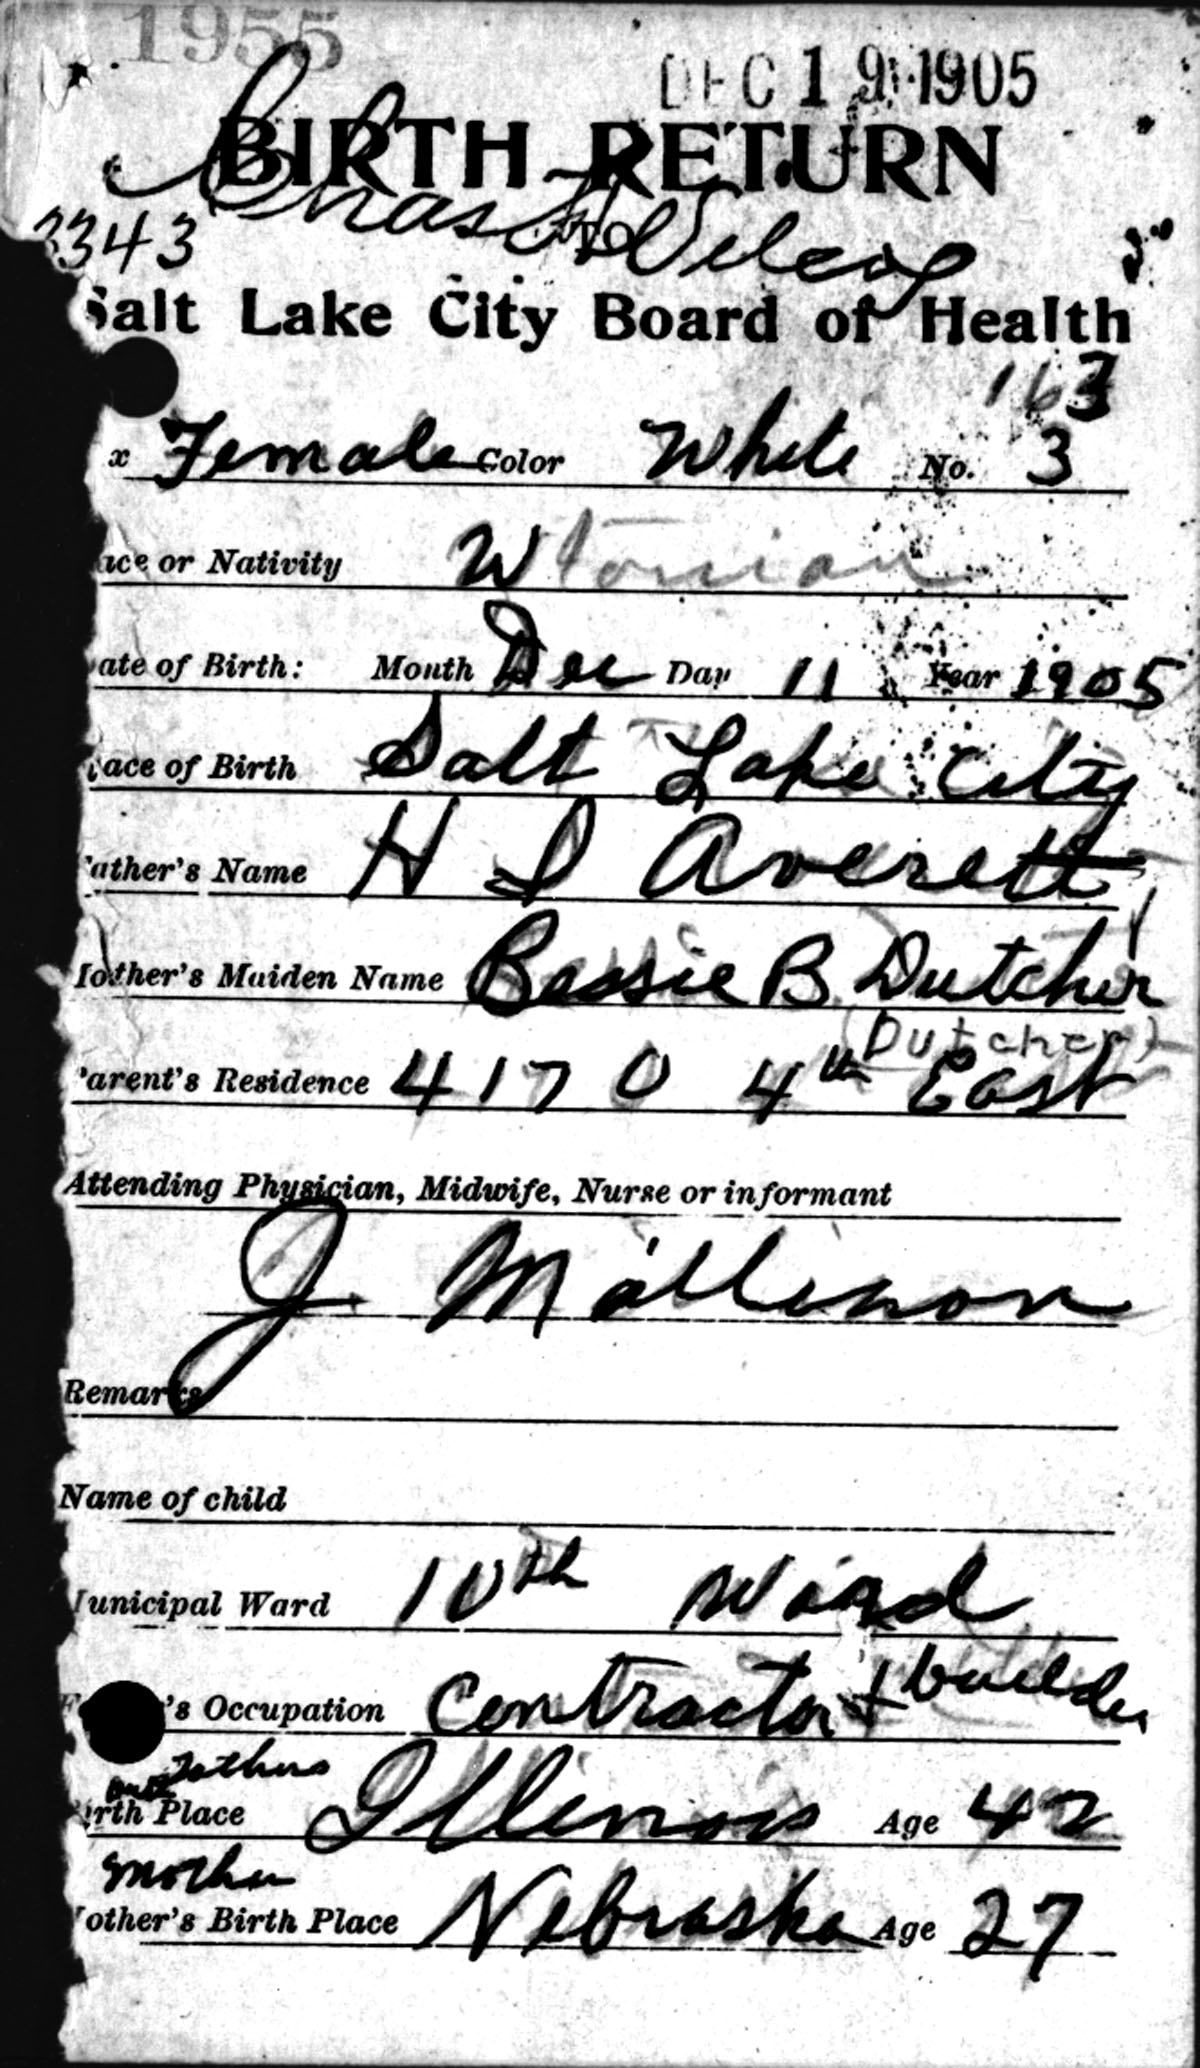 1955
DEC 19 1905
BIRTH RETURN
Chas H Wilcox
TO
3343
Salt Lake City Board of Health
163
x Female Color White No. 3
ace or Nativity W
ate of Birth: Month Dec Day 11 Year 1905
ace of Birth Salt Lake City
ather's Name H I Averett
Mother's Maiden Name Bessie B Dutcher
(Dutcher)
Parent's Residence 4170 4th East
Attending Physician, Midwife, Nurse or informant
J Mallinson
Remarks
Name of child
Municipal Ward 10th Ward
F 's Occupation Contractor + builder
Fathers
irth Place Illinois Age 42
Mother
other's Birth Place Nebraska Age 27